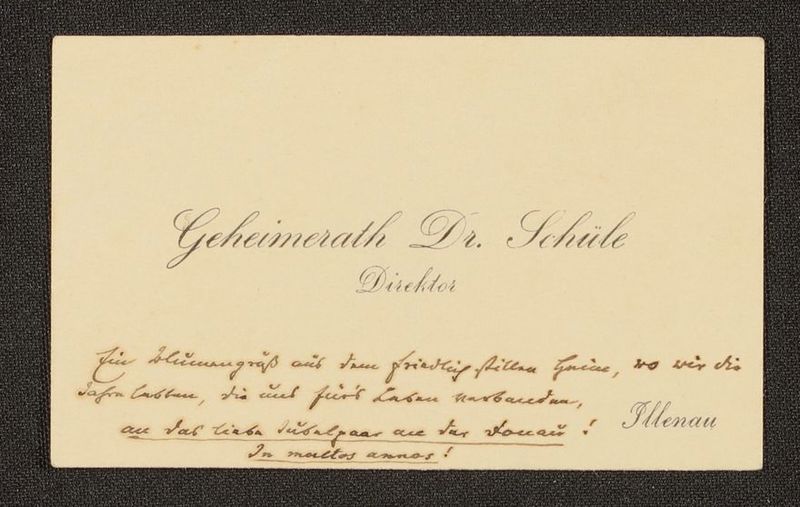 Geheimerath Dr. Schüle
Direktor
Ein Blumengruß aus dem friedlich stillen Heim, wo wir die
Jahre lebten, die uns für's Leben verbanden,
an das liebe Jubelpaar an der Donau!
In multos annos!
Illenau